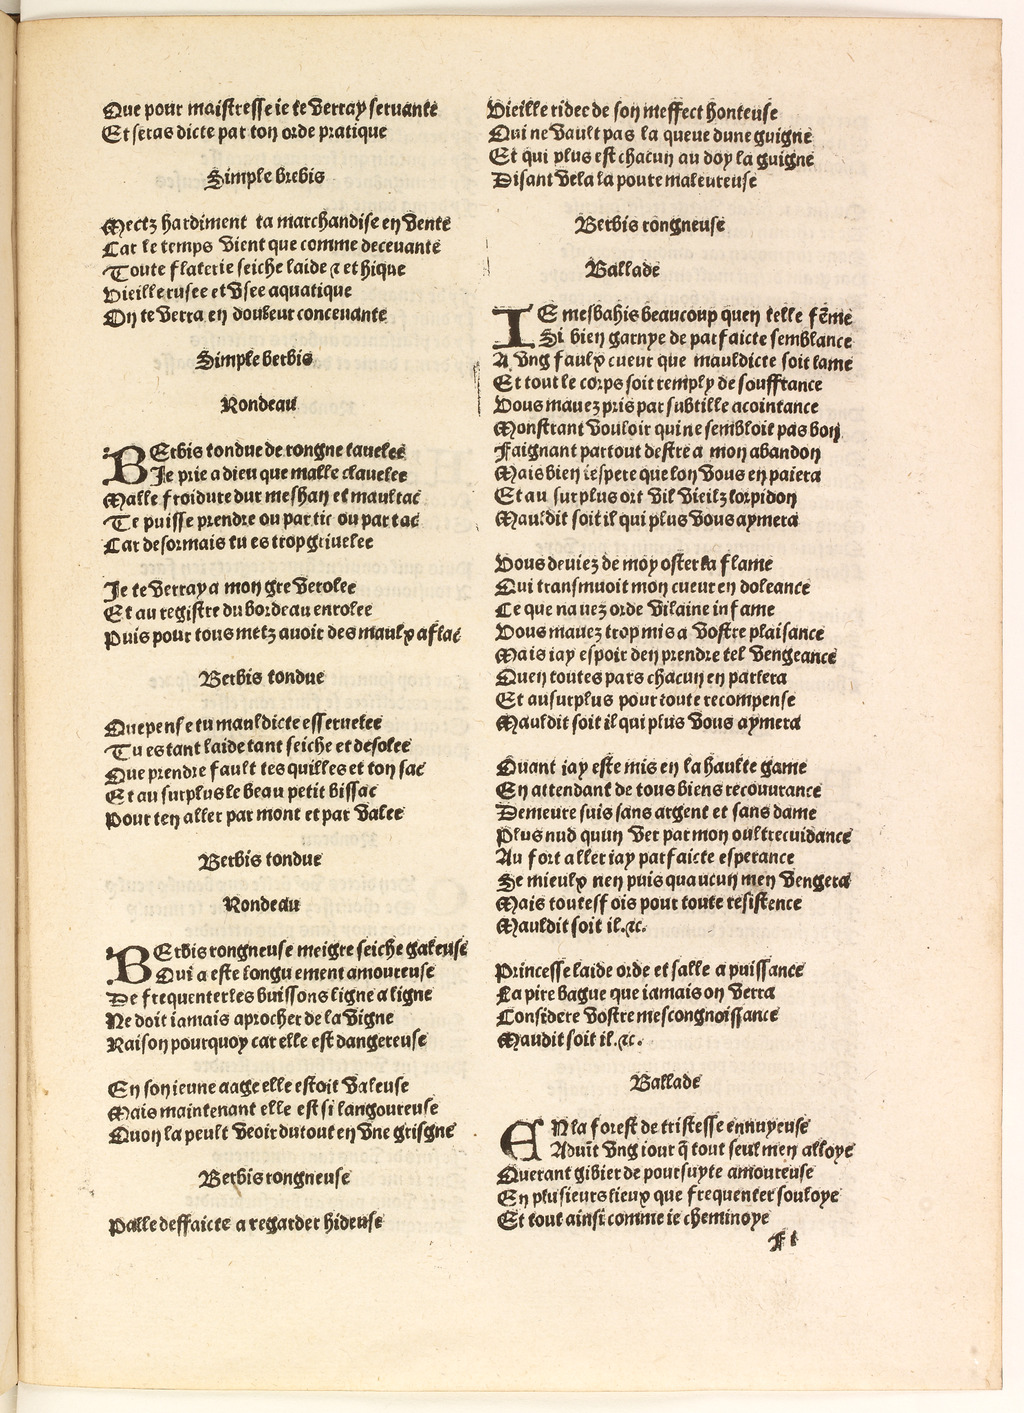 Que pour maistresse ie te verray seruante
Et seras dicte par ton orde pratique
Simple brebis
Mectz hardiment ta marchandise en vente
Car le temps vient que comme deceuante
Toute flaterie seiche laide ⁊ ethique
Vieille rusee et vsee aquatique
On te verra en douleur conceuante
Simple berbis
Rondeau
BErbis tondue de rongne lauelee
Je prie a dieu que malle clauelee
Malle froidure dur meshan et maultac
Te puisse prendre ou par tic ou par tac
Car desormais tu es trop griuelee
Je te verray a mon gre verolee
Et au registre du bordeau enrolee
Puis pour tous metz auoir des maulx aflac
Berbis tondue
Que pense tu mauldicte esseruelee
Tu es tant laide tant seiche et desolee
Que prendre fault tes quilles et ton sac
Et au surplus le beau petit bissac
Pour ten aller par mont et par valee
Berbis tondue
Rondeau
BErbis rongneuse meigre seiche galeuse
Qui a este longuement amoureuse
De frequenter les buissons ligne a ligne
Ne doit iamais aprocher de la vigne
Raison pourquoy car elle est dangereuse
En son ieune aage elle estoit valeuse
Mais maintenant elle est si langoureuse
Quon la peult veoir du tout en vne grisgne
Berbis rongneuse
Palle deffaicte a regarder hideuse
Vieille ridee de son meffect honteuse
Qui ne vault pas la queue dune guigne
Et qui plus est chacun au doy la guigne
Disant vela la poure maleureuse
Berbis rongneuse
Ballade
IE mesbahis beaucoup quen telle fẽme
Si bien garnye de parfaicte semblance
A vng faulx cueur que mauldicte soit lame
Et tout le corps soit remply de souffrance
Vous mauez pris par subtille acointance
Monstrant vouloir qui ne sembloit pas bon
Faignant partout destre a mon abandon
Mais bien iespere que lon vous en paiera
Et au surplus ort vil vieilz lorpidon
Mauldit soit il qui plus vous aymera
Vous deuiez de moy oster la flame
Qui transmuoit mon cueur en doleance
Ce que nauez orde vilaine infame
Vous mauez trop mis a vostre plaisance
Mais iay espoir den prendre tel vengeance
Quen toutes pars chacun en parlera
Et au surplus pour toute recompense
Mauldit soit il qui plus vous aymera
Quant iay este mis en la haulte game
En attendant de tous biens recouurance
Demeure suis sans argent et sans dame
Plus nud quun ver par mon oultrecuidance
Au fort aller iay parfaicte esperance
Se mieulx nen puis quaucun men vengera
Mais toutesfois pour toute resistence
Mauldit soit il.⁊c.
Princesse laide orde et salle a puissance
La pire bague que iamais on verra
Considere vostre mescongnoissance
Maudit soit il.⁊c.
Ballade
EN la forest de tristesse ennuyeuse
Aduĩt vng iour q̃ tout seul men alloye
Querant gibier de poursuyte amoureuse
En plusieurs lieux que frequenter souloye
Et tout ainsi comme ie cheminoye